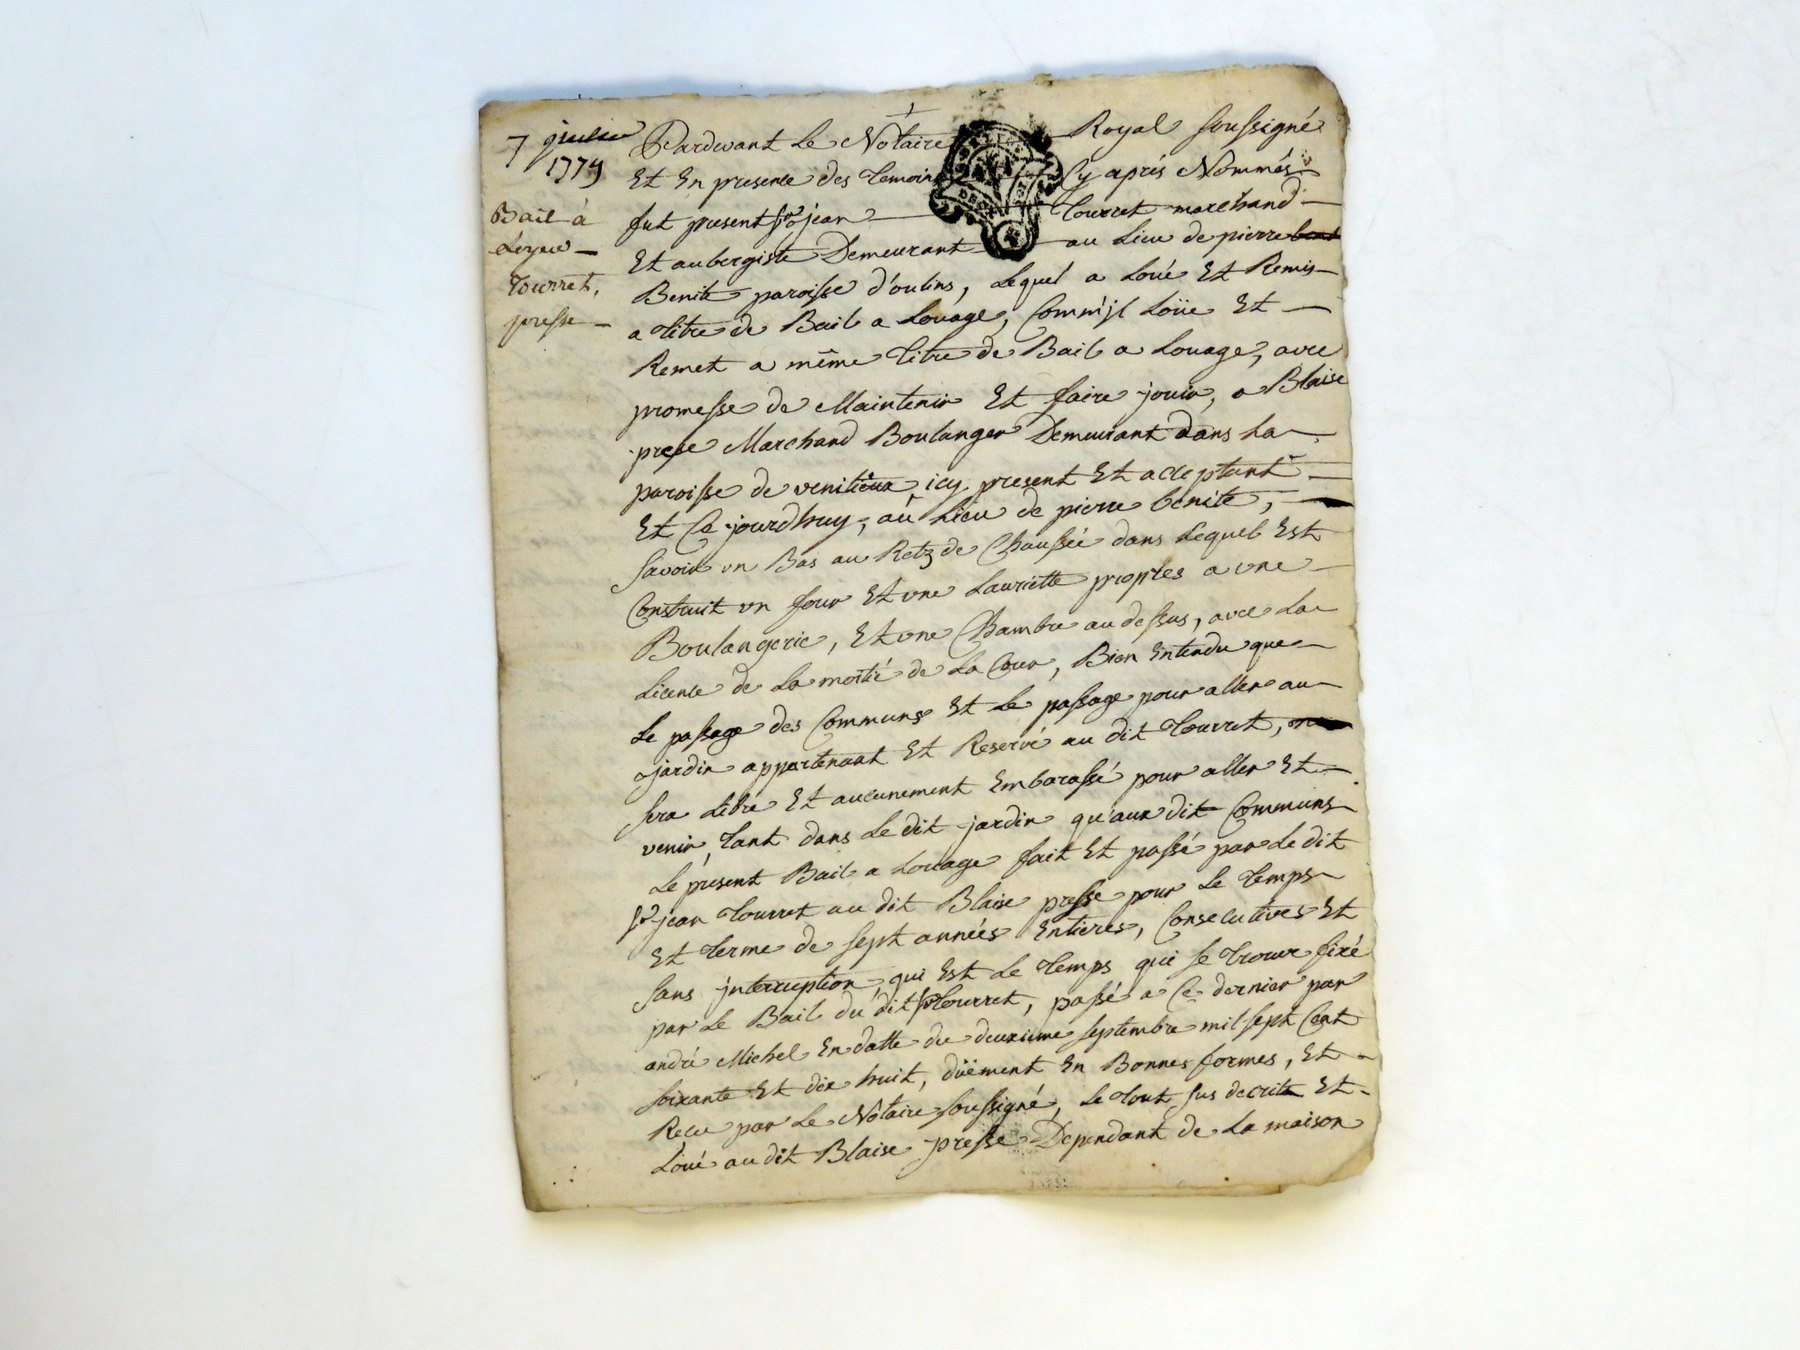 7
1779
Bail à
Loyer
Tourret,
presse
Pardevant Le Notaire Royal soussigné
Et En presence des temoins Cy aprés Nommés
fut present sr jean Tourret marchand
Et aubergiste Demeurant au Lieu de pierre
Benite paroisse d'oulins, Lequel a Loué Et Remis
a titre de Bail a Louage, Comm'jl Loüe Et
Remet a même titre de Bail a Louage, avec
promesse de Maintenir Et faire jouir, a Blaise
presse Marchand Boulanger Demeurant dans La
paroisse de venitieux, icy present Et acceptant
Et Ce jourdhuy, au Lieu de pierre benite,
Savoir un Bas au Retz de Chaussée dans Lequel Est
Construit un four Et une Lauriette propres a une
Boulangerie, Et une Chambre au dessus, avec La
Licence de La moitié de La Cour, Bien Entendu que
Le passage des Communs Et Le passage pour aller au
jardin appartenant Et Reservé au dit Tourret,
sera Libre Et aucunement Embarassé pour aller Et
venir, tant dans Le dit jardin qu'aux dit Communs
Le present Bail a Louage fait Et passé par Le dit
sr jean Tourret au dit Blaise presse pour Le temps
Et terme de sept années Entieres, Consecutives Et
sans jnterruption, qui Est Le temps qui se trouve fixé
par Le Bail du dit sr Tourret, passé a Ce dernier par
andré Michel En datte du deuxieme septembre mil sept Cent
soixante Et dix huit, düement En Bonnes formes, Et
Recu par Le Notaire soussigné, Le tout sus decrit Et
Loué au dit Blaise presse Dependant de La maison